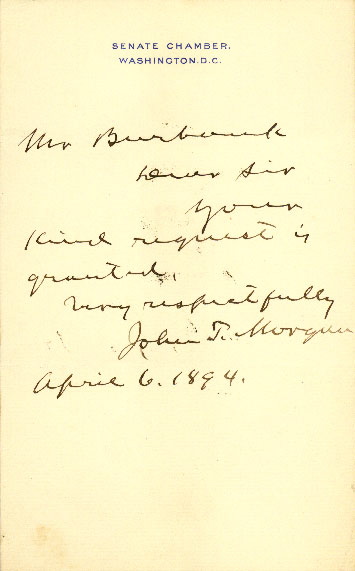 SENATE CHAMBER,
WASHINGTON, D.C.
Mr Burbank
Dear Sir
Your
Kind request is
granted.
Very respectfully
John T. Morgan
April 6. 1894.